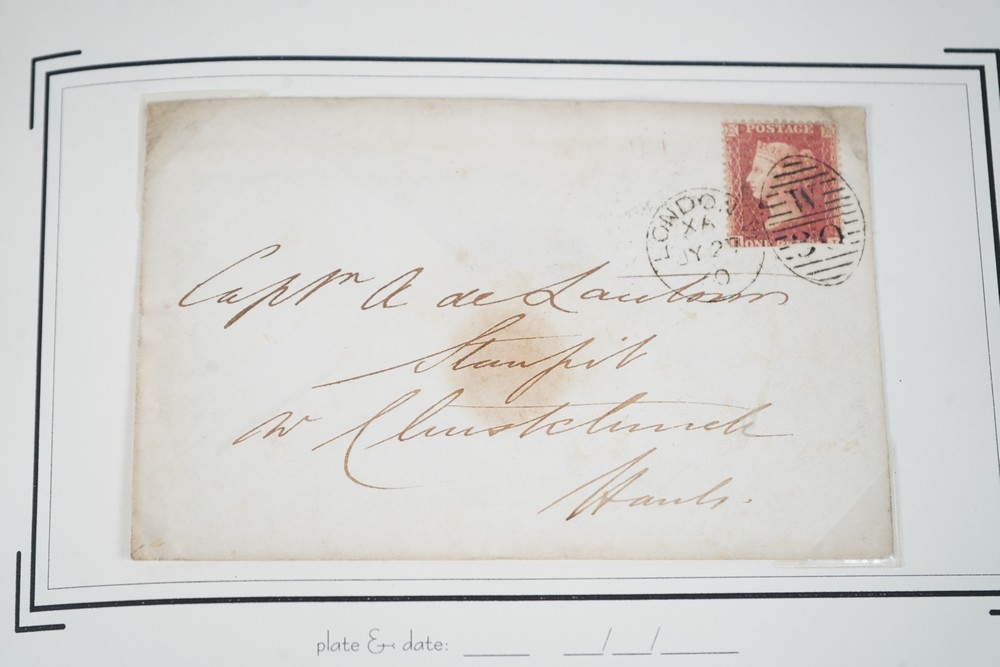 POSTAGE
LONDON
XA
JY 27
0
W
30
Capt<sup>n</sup> A de
Stanpit
nr Christchurch
Hants.
plate & date: ____ __/__/____